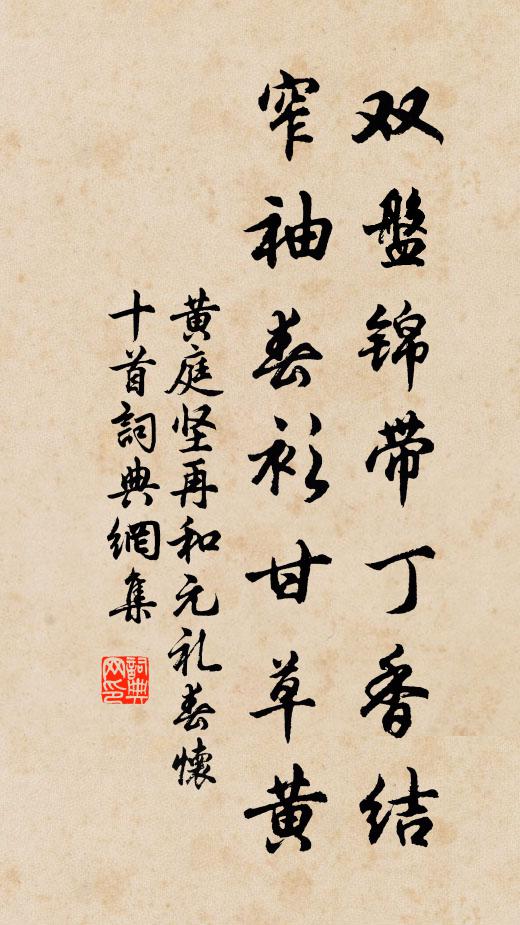 双盤锦带丁香结
窄袖春衫甘草黄
黄庭坚再和元礼春懷
十首詞典網集
詞典网印